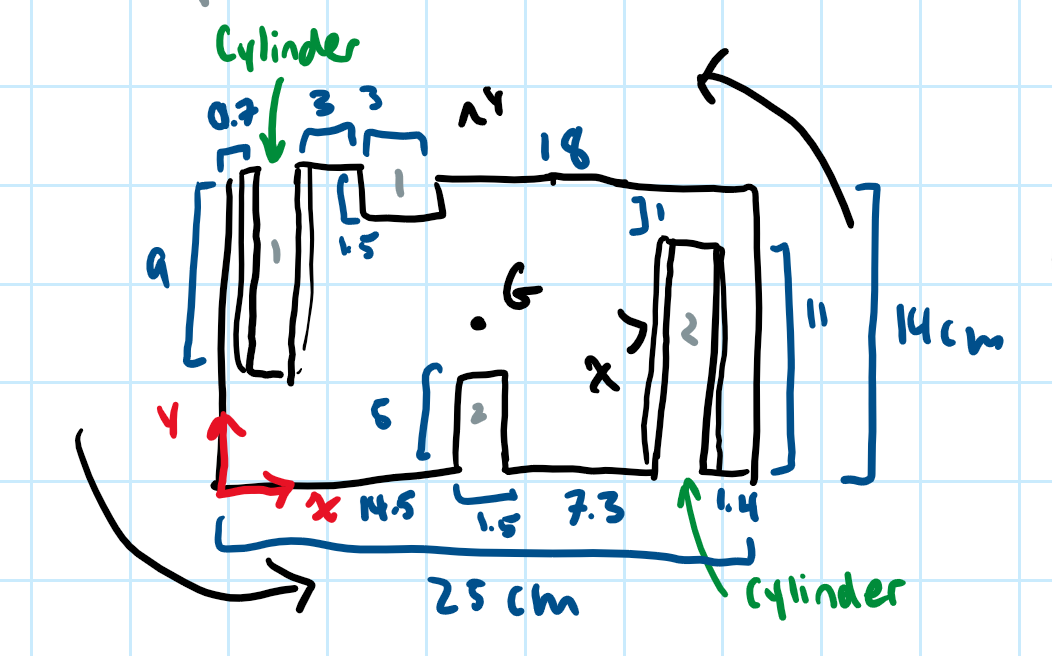 Cylinder
0.7 3 3
18
1
1.5
1
1
9
G
2
11
14 cm
x
5
2
Y
x
14.5
1.5
7.3
1.4
25 cm
cylinder